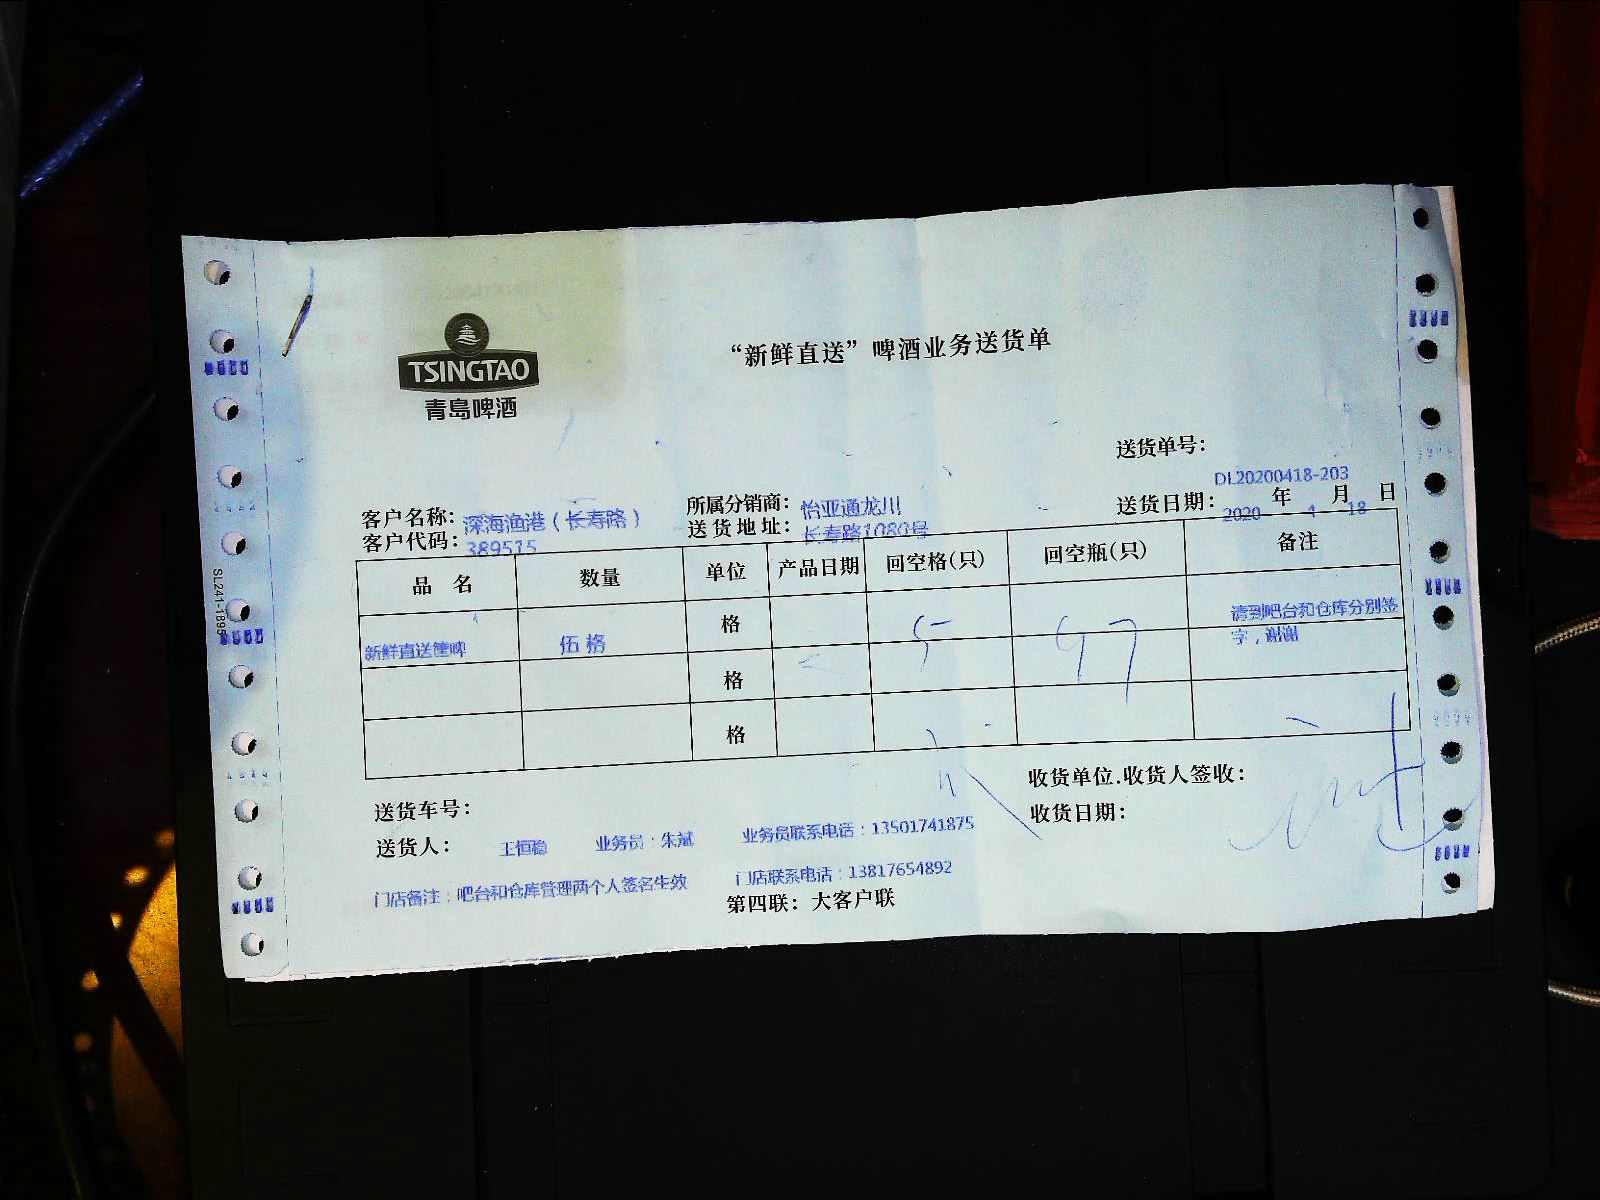 TSINGTAO
青岛啤酒
“新鲜直送”啤酒业务送货单
送货单号：
DL20200418-203
客户名称：深海渔港（长寿路） 所属分销商：怡亚通龙川 送货日期：2020年4月18日
客户代码：389515 送货地址：长寿路1080号
品 名 数量 单位 产品日期 回空格(只) 回空瓶(只) 备注
新鲜直送篓啤 伍格 格 5 97 请到吧台和仓库分别签字，谢谢
格
格
送货车号： 收货单位.收货人签收：
收货日期：
送货人： 王恒稳 业务员：朱斌 业务员联系电话：13501741875
门店备注：吧台和仓库管理两个人签名生效 门店联系电话：13817654892
第四联：大客户联
SL241-1895